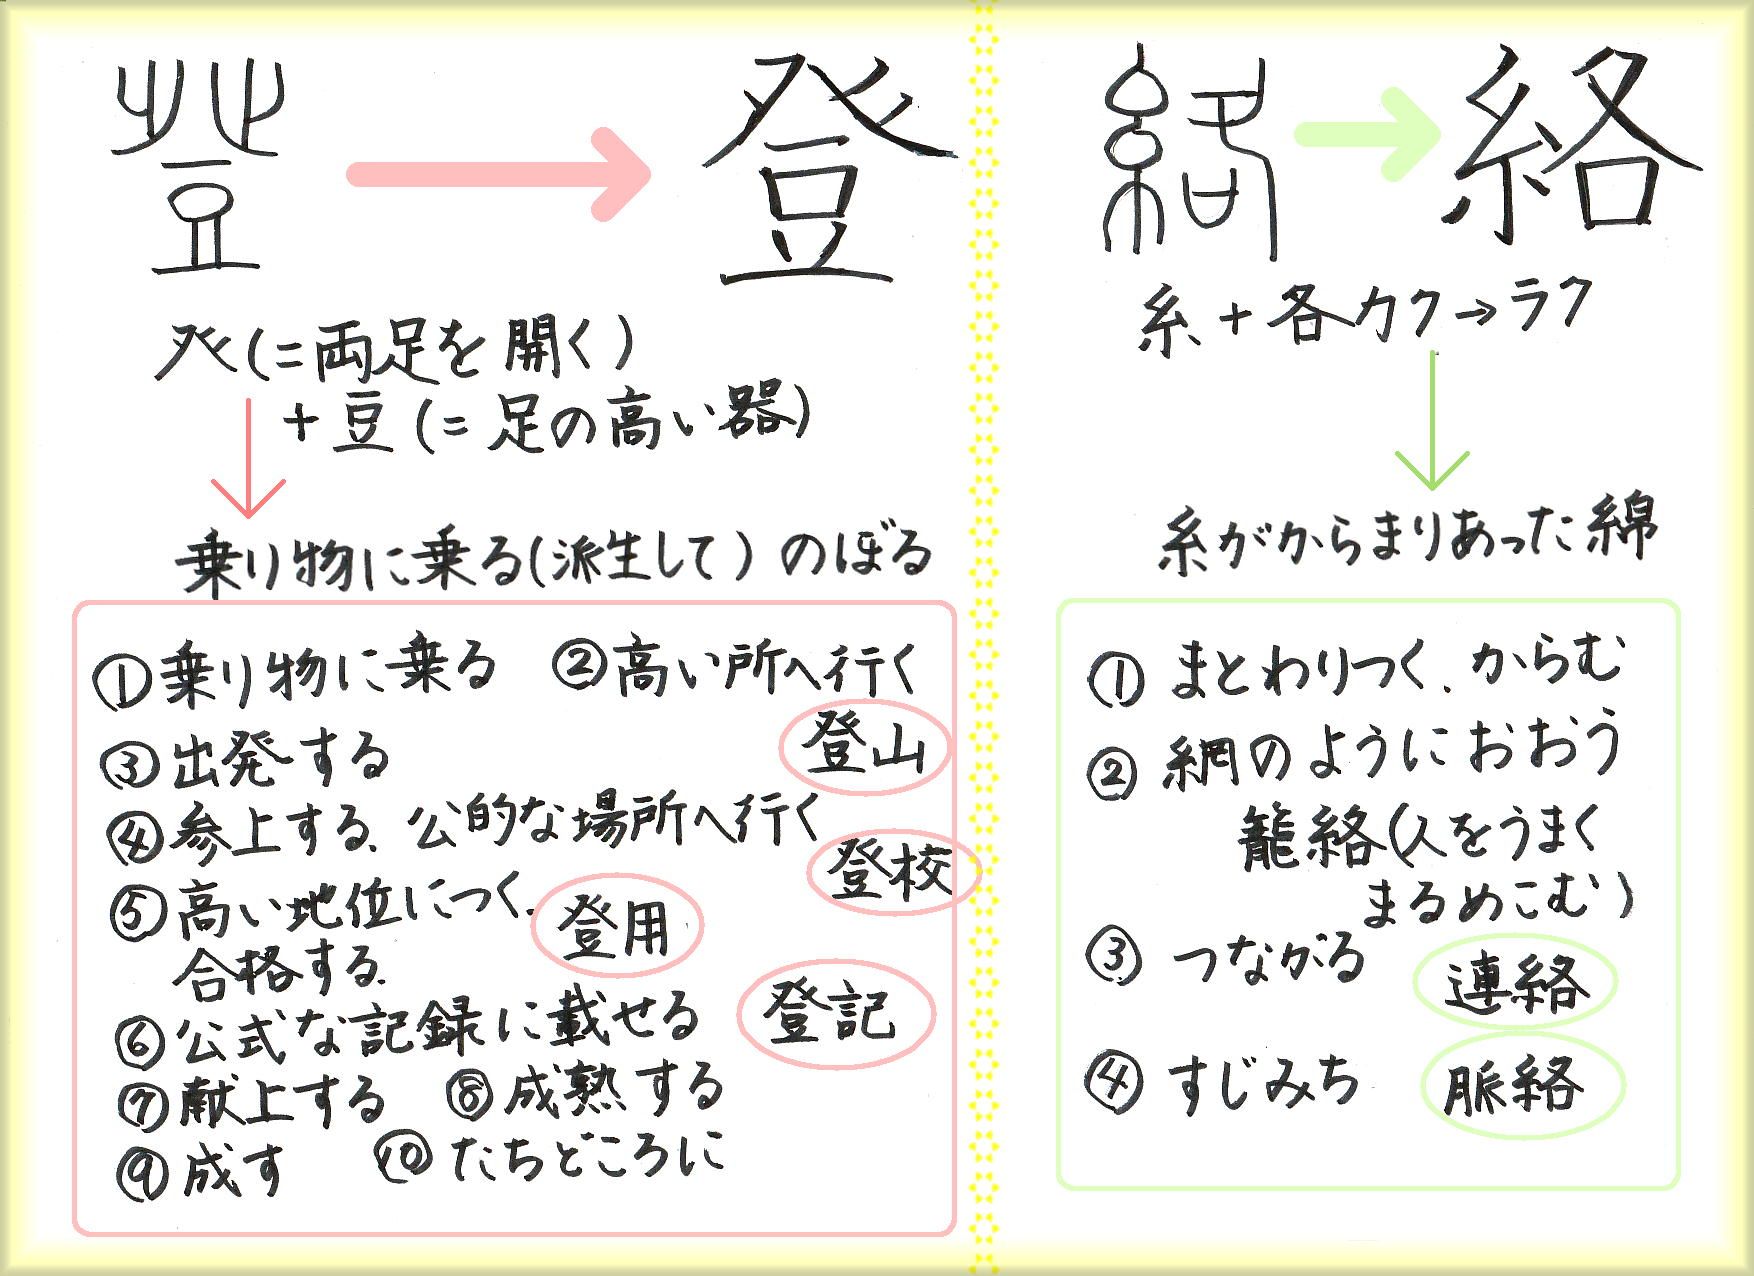 登
癶(=両足を開く)
+豆(=足の高い器)
乗り物に乗る(派生して)のぼる
①乗り物に乗る ②高い所へ行く
登山
③出発する
④参上する、公的な場所へ行く
登校
⑤高い地位につく、
合格する、
登用
⑥公式な記録に載せる
登記
⑦献上する ⑧成熟する
⑨成す ⑩たちどころに
絡
糸+各カク→ラク
糸がからまりあった綿
①まとわりつく、からむ
②網のようにおおう
籠絡(人をうまく
まるめこむ)
③つながる
連絡
④すじみち
脈絡